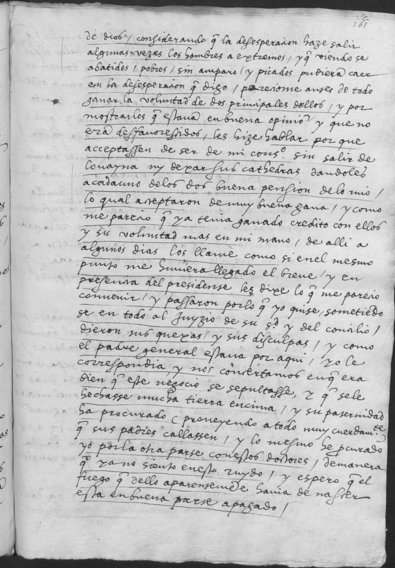 161
de dios / considerando q̃ la desesperacion haze salir
algunas vezes los hombres a extremos / y q̃ viendo se
abatidos / pobres / sin amparo / y picados pudieran caer
en la desesperacion q̃ digo / pareciome antes de todo
ganar la voluntad de dos principales dellos / y por
mostrarles q̃ estava en buena opinion y que no
era desfavorescidos / les hize hablar por que
acceptassen de ser de mi cons.º sin salir de
Lovayna ny dexar sus cathedras dandoles
a cada uno de los dos buena pension de lo mio /
lo qual aceptaron de muy buena gana / y como
me parecio q̃ ya tenia ganado credito con ellos
y su voluntad mas en mi mano / de alli a
algunos dias los llame como si en el mesmo
punto me huviera llegado el breve / y en
presencia del presidente les dixe lo q̃ me parecio
convenir / y passaron por lo q̃ yo quise / sometiendo
se en todo al juyzio de su S.d y del concilio /
dieron sus quexas / y sus disculpas / y como
el padre general estava por aqui / yo le
correspondia / y nos concertamos en q̃ era
bien q̃ este negocio se sepultasse / y q̃ se le
hechasse mucha tierra encima / y su paternidad
ha procurado (proveyendo a todo muy cuerdam.te
q̃ sus padres callassen / y lo mesmo he procurado
yo por la otra parte con estos doctores / de manera
q̃ ya no siento en esto ruydo / y espero q̃ el
fuego q̃ dello aparentemente havia de nascer
esta en buena parte apagado /